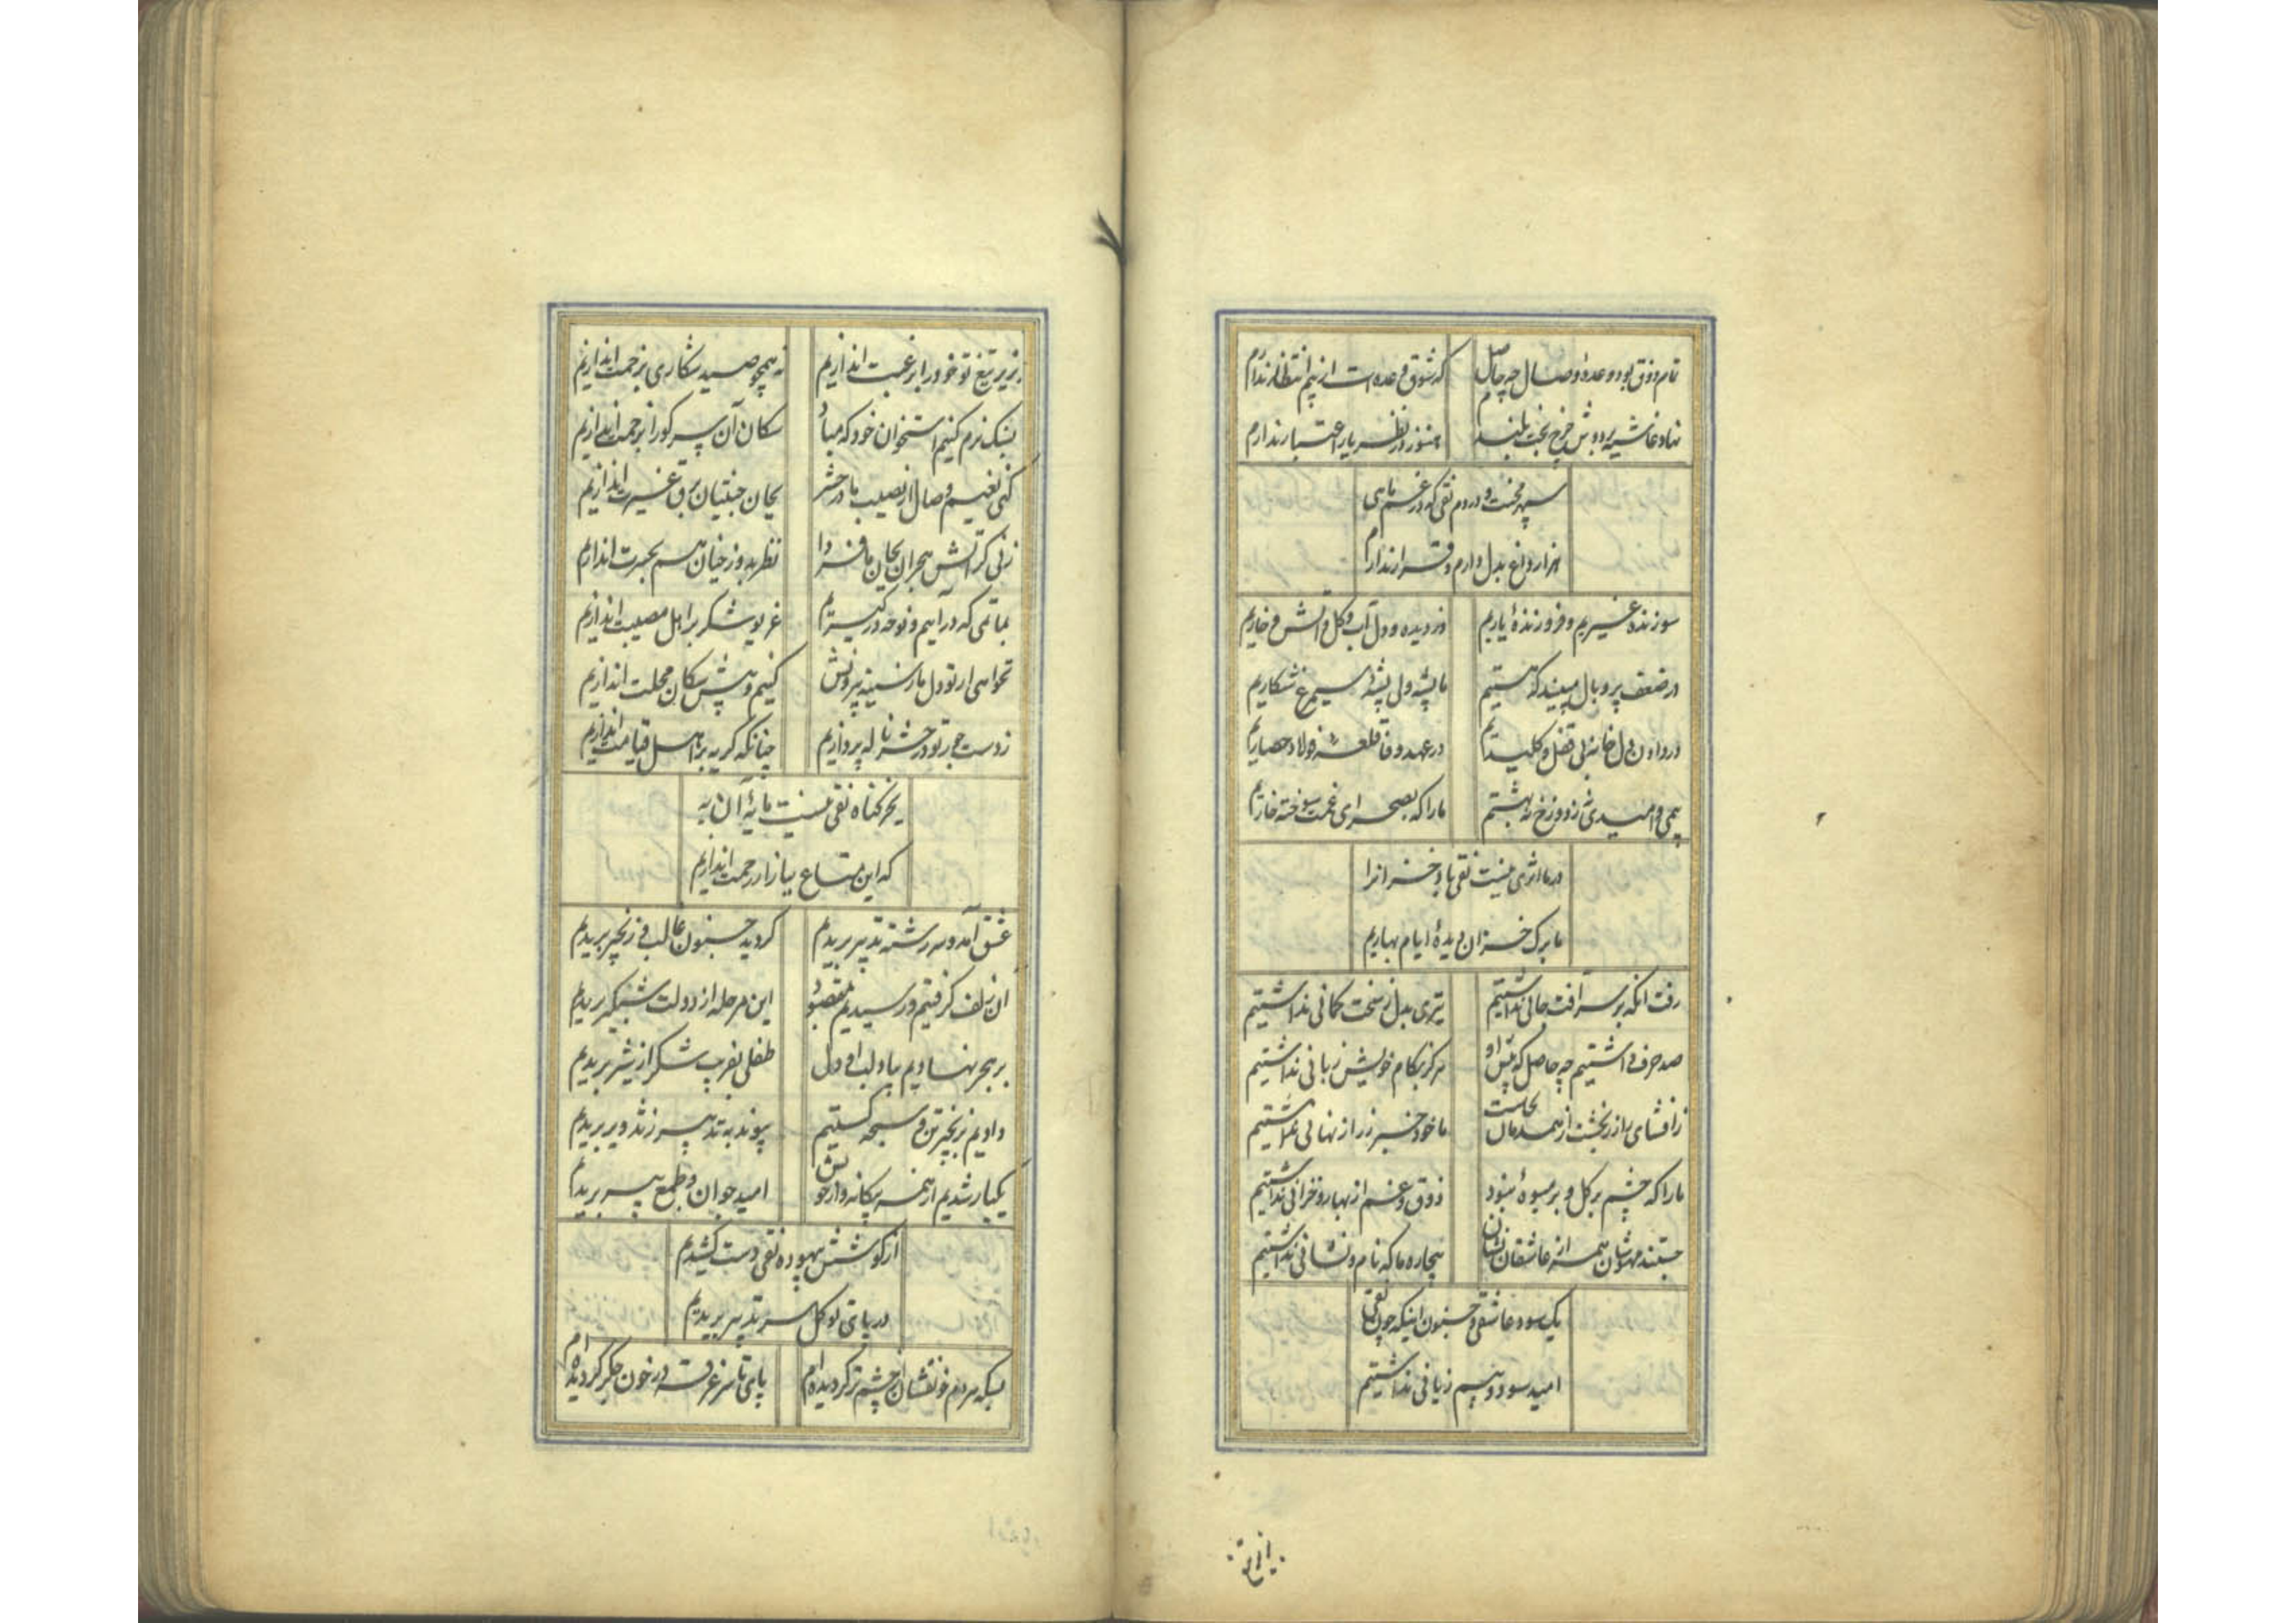 تمام ذوق بود وعدهٔ وصال چه حاصل
که شوق وعده است از بیم انتظار ندارم
نهاد غاشیه بر دوش چرخ بخت بلندم
هنوز در نظر یار اعتبار ندارم
سپهر محنت و دردم نقی که در غم ماهی
هزار داغ بدل دارم و قرار ندارم
سوزنده غیریم و فروزندهٔ یاریم
در دیده و دل آب و گل و آتش و خاریم
در ضعف پر و بال مبیند که هستیم
ما پشه ولی پشهٔ سیمرغ شکاریم
در دادن دل خانه بی قفل و کلیدیم
در عهد و وفا قلعه فولاد حصاریم
بیمی و امیدی نه ز دوزخ نه بهشتم
ما را که بصحرای غمت سوخته خاریم
در ما اثری نیست نقی باد خزانرا
ما برک خزان دیدهٔ ایام بهاریم
رفت آنکه بر سر آفت جانی نداشتیم
تیری بدل ز سخت کمانی نداشتیم
صد حرف داشتیم چه حاصل که پیش او
هرگز بکام خویش زبانی نداشتیم
ز افشای راز رنجشت از همدمان بجاست
ما خود خبر ز راز نهانی نداشتیم
ما را که چشم بر گل و بر میوهٔ نبود
ذوق و غم از بهار و خزانی نداشتیم
جستند مهوشان همه از عاشقان نشان
بیچاره ما که نام و نشانی نداشتیم
یک سود عاشقی و جنون اینکه چون نقی
امید سود و بیم زیانی نداشتیم
بزیر تیغ
بزیر تیغ تو خود را برغبت اندازیم
نه همچو صید شکاری بزحمت اندازیم
بسنک نرم کنیم استخوان خود که مباد
سکان آن سر کو را بزحمت اندازیم
کنی نعیم وصال ار نصیب ما در حشر
بجان جنتیان برق غیرت اندازیم
زنی گر آتش هجران بجان ما فردا
نظر بدوزخیان هم بحسرت اندازیم
بماتمی که درآییم و نوحه در گیریم
غریو شکر بر اهل مصیبت اندازیم
نخواهی ار تو دل ما ز سینه بیرونش
کنیم و پیش سکان محلت اندازیم
ز دست جور تو در حشر ناله پردازیم
چنانکه گریه بر اهل قیامت اندازیم
بجز کناه نقی نیست مایهٔ آن به
که این متاع ببازار رحمت اندازیم
عشق آمد و سررشته تدبیر بریدیم
گردید جنون غالب و زنجیر بریدیم
آن زلف گرفتیم و رسیدیم بمقصود
این مرحله از دولت شبگیر بریدیم
بر هجر نهادیم بیاد لب او دل
طفلی بفریب شکر از شیر بریدیم
دادیم بزنجیر تن و سبحه گسستیم
پیوند به تدبیر ز تزویر بریدیم
یکبار شدیم از همه بیگانه و از خویش
امید جوان و طمع پیر بریدیم
از کوشش بیهوده نقی دست کشیدیم
در پای توکل سر تدبیر بریدیم
بسکه مردم خونفشان از چشم تر گردیده‌ام
پای تا سر غرقه در خون جگر گردیده‌ام